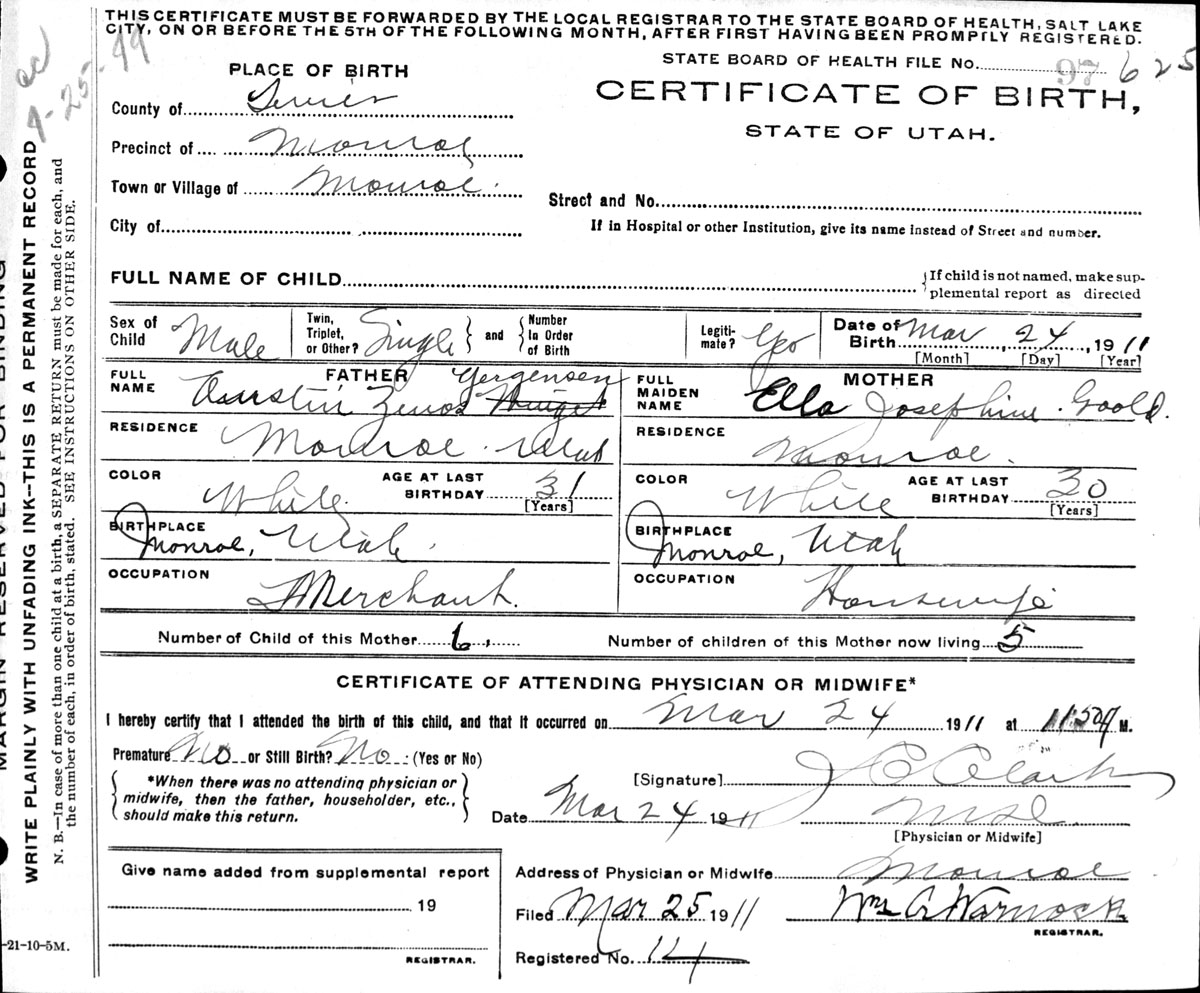 THIS CERTIFICATE MUST BE FORWARDED BY THE LOCAL REGISTRAR TO THE STATE BOARD OF HEALTH, SALT LAKE
CITY, ON OR BEFORE THE 5TH OF THE FOLLOWING MONTH, AFTER FIRST HAVING BEEN PROMPTLY REGISTERED.
STATE BOARD OF HEALTH FILE No. 97 625
PLACE OF BIRTH
CERTIFICATE OF BIRTH,
STATE OF UTAH.
County of Sevier
Precinct of Monroe
Town or Village of Monroe.
Street and No.
City of
If in Hospital or other Institution, give its name instead of Street and number.
FULL NAME OF CHILD {If child is not named, make sup-
plemental report as directed
Sex of Child Male Twin, Triplet, or Other? Single } and { Number In Order of Birth Legiti-mate? Yes Date of Birth Mar 24, 1911
[Month] [Day] [Year]
FATHER
FULL NAME Zenos Yergensen
RESIDENCE Monroe Utah
COLOR White AGE AT LAST BIRTHDAY 31
[Years]
BIRTHPLACE Monroe, Utah.
OCCUPATION Merchant.
MOTHER
FULL MAIDEN NAME Ella Josephine Goold.
RESIDENCE Monroe.
COLOR White AGE AT LAST BIRTHDAY 30
[Years]
BIRTHPLACE Monroe, Utah
OCCUPATION Housewife
Number of Child of this Mother 6, Number of children of this Mother now living 5
CERTIFICATE OF ATTENDING PHYSICIAN OR MIDWIFE*
I hereby certify that I attended the birth of this child, and that it occurred on Mar 24 1911 at M.
Premature No or Still Birth? No : (Yes or No)
*When there was no attending physician or
midwife, then the father, householder, etc.,
should make this return.
[Signature] J C Clark
Date Mar 24 1911
[Physician or Midwife]
Give name added from supplemental report
19
REGISTRAR.
Address of Physician or Midwife Monroe
Filed Mar 25 1911 Wm A Warnock
REGISTRAR.
Registered No. 14
-21-10-5M.
MARGIN RESERVED FOR BINDING
WRITE PLAINLY WITH UNFADING INK--THIS IS A PERMANENT RECORD
N. B.—In case of more than one child at a birth, a SEPARATE RETURN must be made for each, and
the number of each, in order of birth, stated. SEE INSTRUCTIONS ON OTHER SIDE.